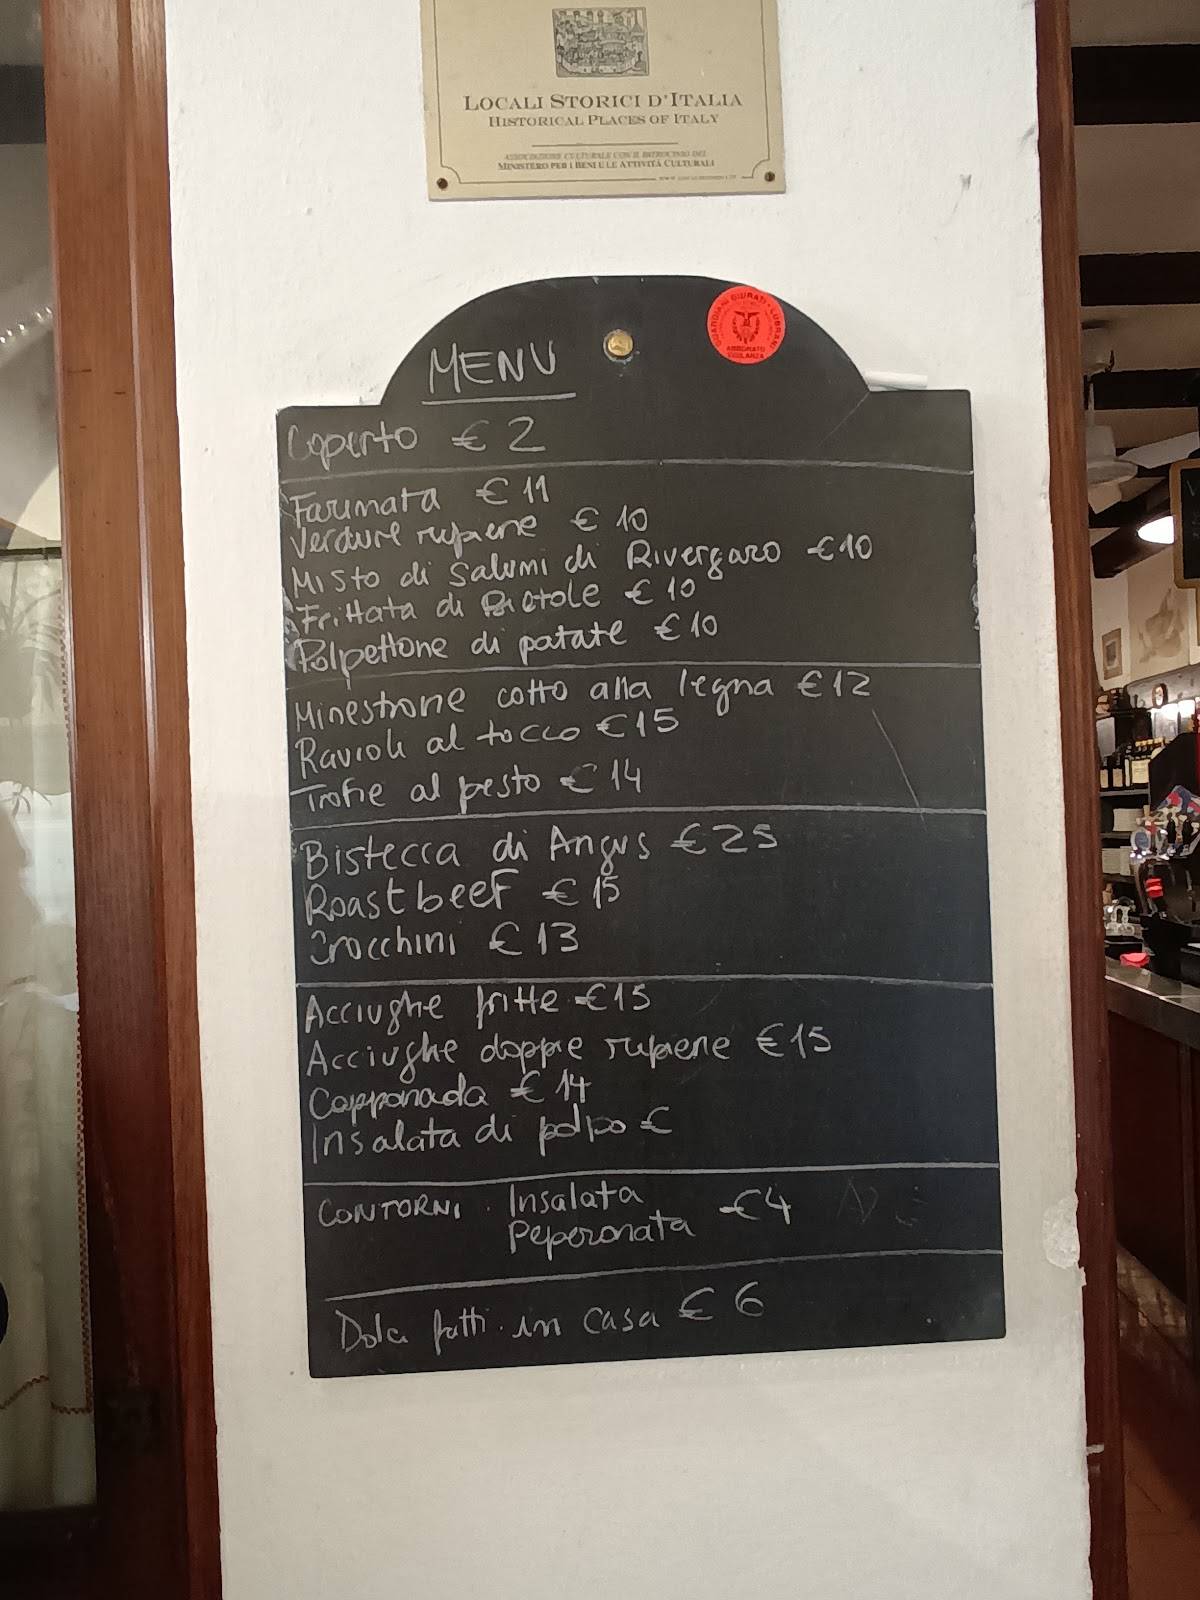 LOCALI STORICI D'ITALIA
HISTORICAL PLACES OF ITALY
ASSOCIAZIONE CULTURALE CON IL PATROCINIO DEL
MINISTERO PER I BENI E LE ATTIVITÀ CULTURALI
GUARDIANI GIURATI · LUBRANI
ABBONATO
VIGILANZA
MENU
Coperto € 2
Farinata € 11
Verdure ripiene € 10
Misto di Salumi di Rivergaro € 10
Frittata di Bietole € 10
Polpettone di patate € 10
Minestrone cotto alla legna € 12
Ravioli al tocco € 15
Trofie al pesto € 14
Bistecca di Angus € 25
Roastbeef € 15
Crocchini € 13
Acciughe fritte € 15
Acciughe doppie ripiene € 15
Capponada € 14
Insalata di polpo €
CONTORNI . Insalata
Peperonata € 4
Dolci fatti in casa € 6